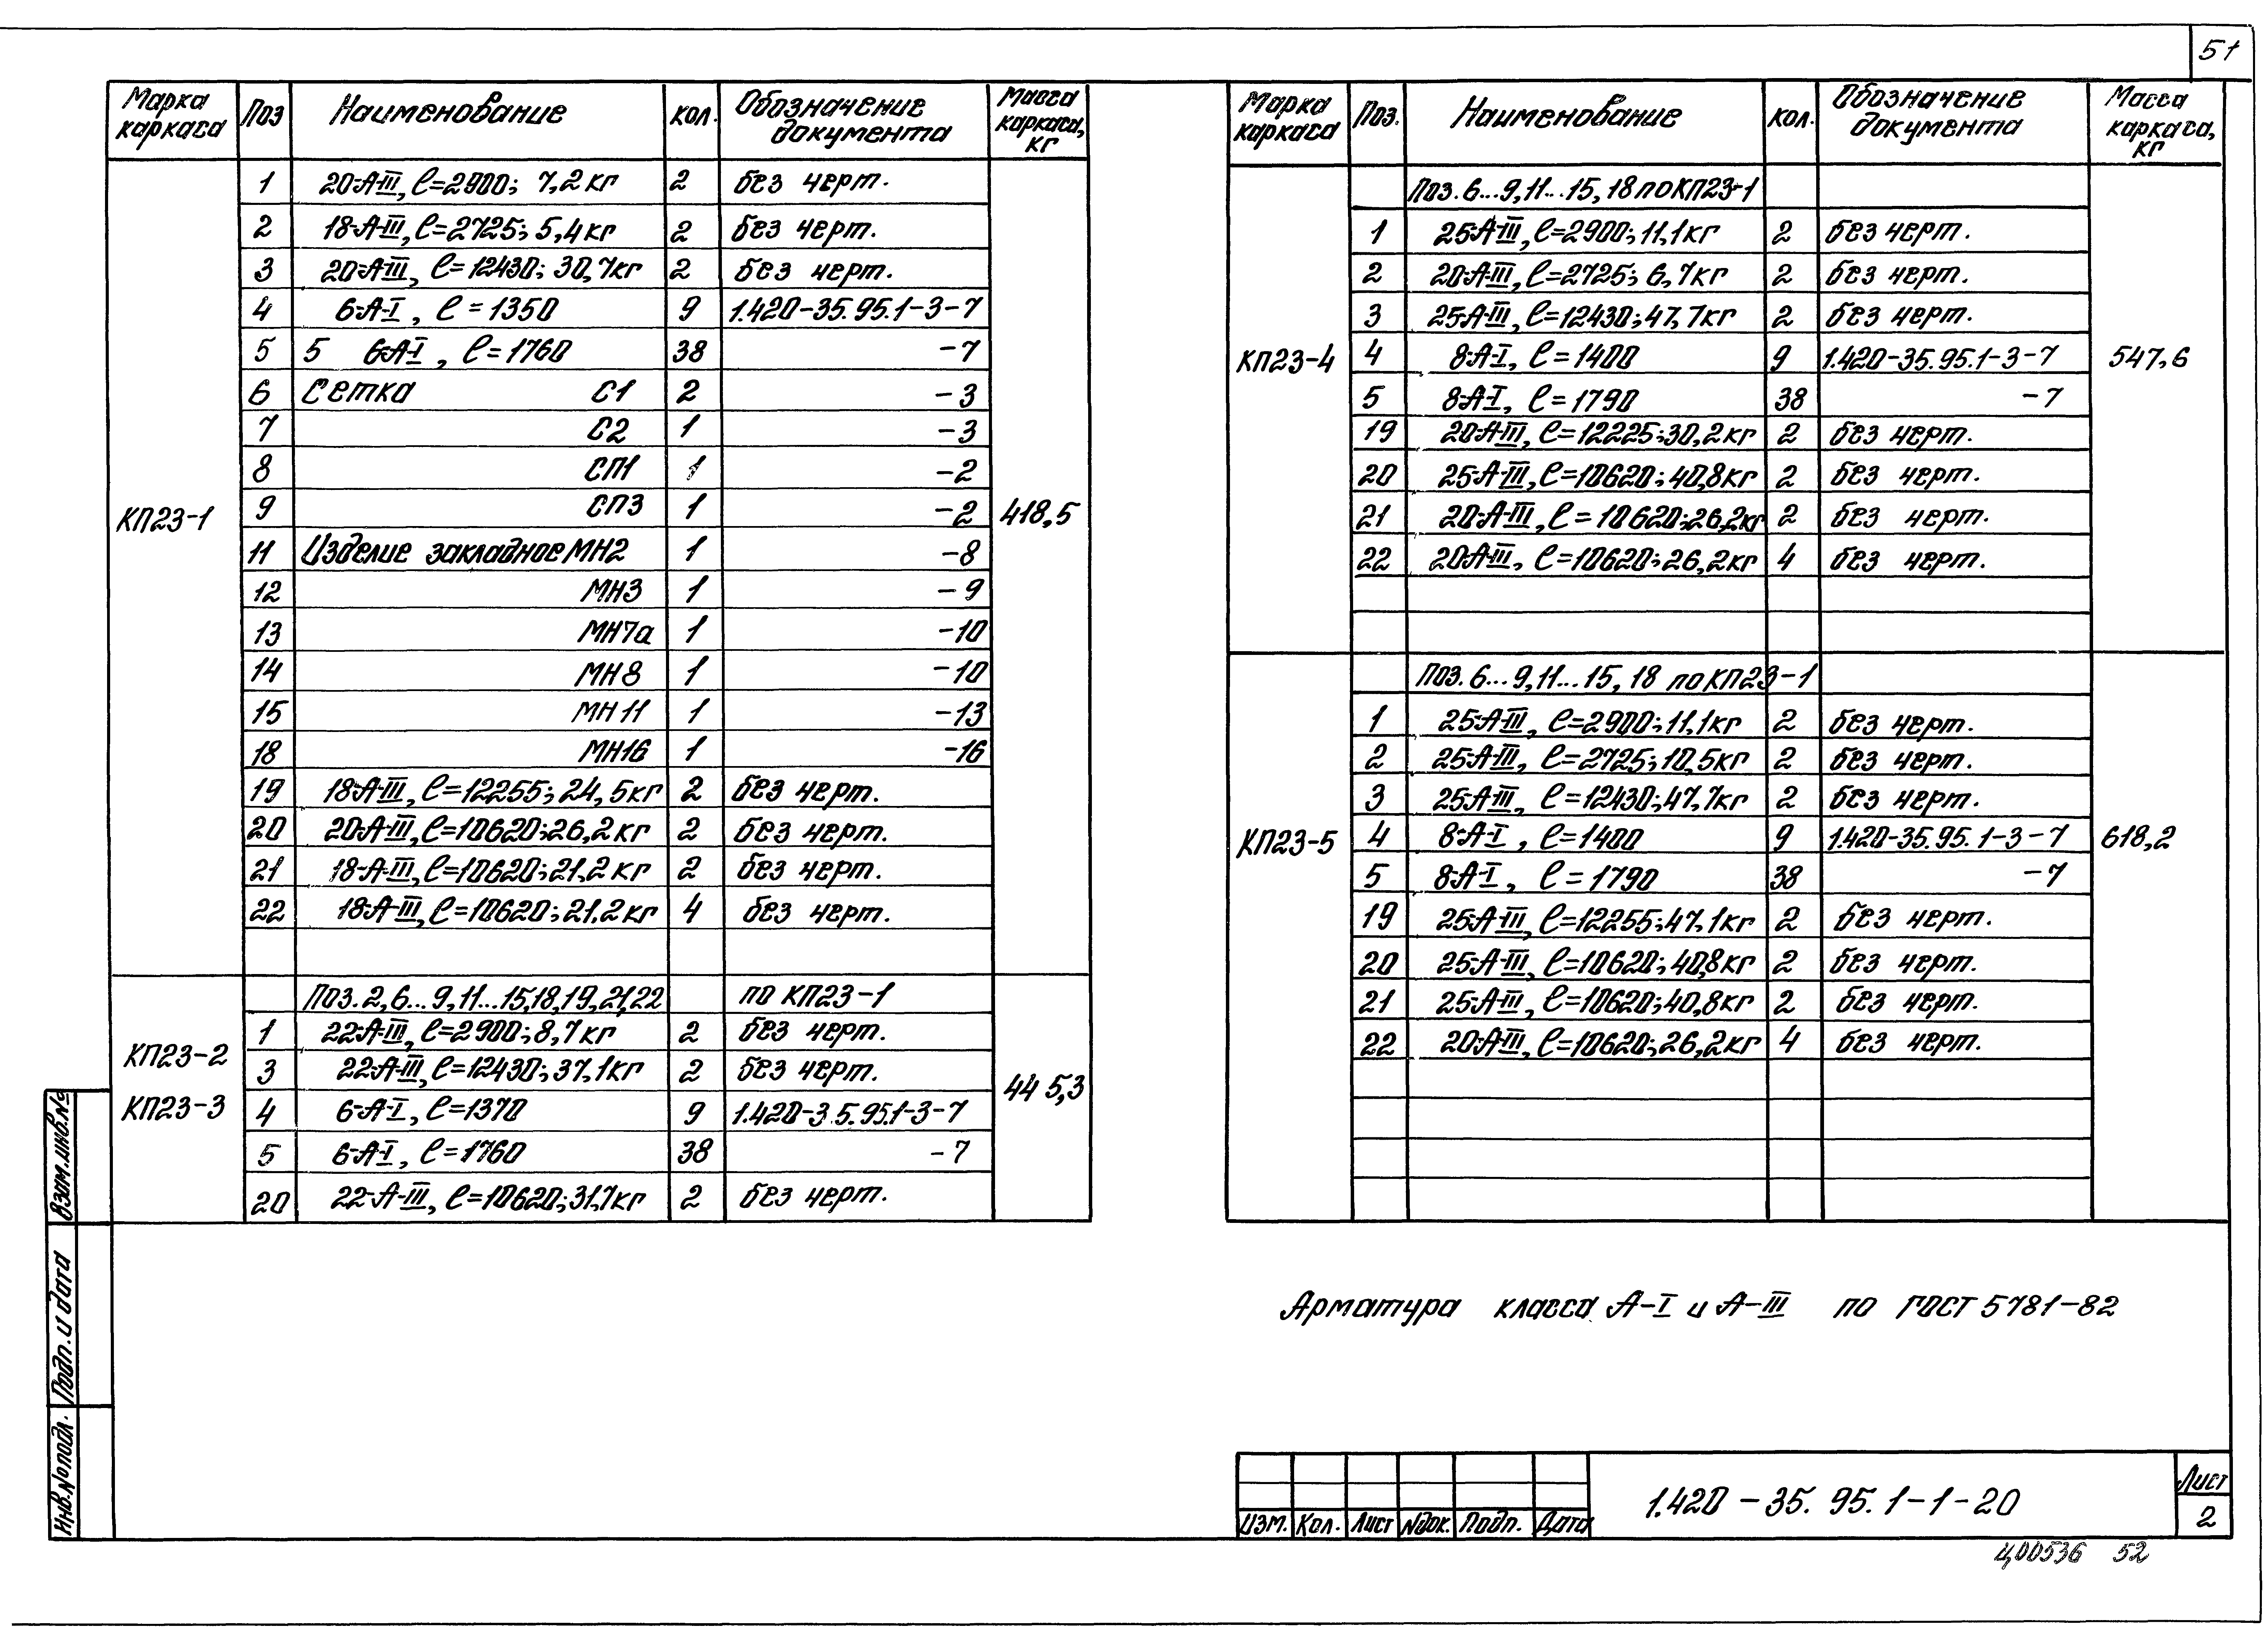 51
Марка каркаса Поз Наименование кол. Обозначение документа Масса каркаса, кг
КП23-1 418,5
1 20-А-III, ℓ=2900; 7,2кг 2 без черт.
2 18-А-III, ℓ=2725; 5,4кг 2 без черт.
3 20-А-III, ℓ=12430; 30,7кг 2 без черт.
4 6-А-I, ℓ=1350 9 1.420-35.95.1-3-7
5 5 6-А-I, ℓ=1760 38 -7
6 Сетка С1 2 -3
7 С2 1 -3
8 СП1 1 -2
9 СП3 1 -2
11 Изделие закладное МН2 1 -8
12 МН3 1 -9
13 МН7а 1 -10
14 МН8 1 -10
15 МН11 1 -13
18 МН16 1 -16
19 18-А-III, ℓ=12255; 24,5кг 2 без черт.
20 20-А-III, ℓ=10620; 26,2кг 2 без черт.
21 18-А-III, ℓ=10620; 21,2кг 2 без черт.
22 18-А-III, ℓ=10620; 21,2кг 4 без черт.
КП23-2
КП23-3 445,3
Поз. 2, 6...9, 11...15, 18, 19, 21, 22 по КП23-1
1 22-А-III, ℓ=2900; 8,7кг 2 без черт.
3 22-А-III, ℓ=12430; 37,1кг 2 без черт.
4 6-А-I, ℓ=1370 9 1.420-3.5.95.1-3-7
5 6-А-I, ℓ=1760 38 -7
20 22-А-III, ℓ=10620; 31,7кг 2 без черт.
Марка каркаса Поз. Наименование кол. Обозначение документа Масса каркаса, кг
КП23-4 547,6
Поз. 6...9, 11...15, 18 по КП23-1
1 25-А-III, ℓ=2900; 11,1кг 2 без черт.
2 20-А-III, ℓ=2725; 6,7кг 2 без черт.
3 25-А-III, ℓ=12430; 47,7кг 2 без черт.
4 8-А-I, ℓ=1400 9 1.420-35.95.1-3-7
5 8-А-I, ℓ=1790 38 -7
19 20-А-III, ℓ=12225; 30,2кг 2 без черт.
20 25-А-III, ℓ=10620; 40,8кг 2 без черт.
21 20-А-III, ℓ=10620; 26,2кг 2 без черт.
22 20-А-III, ℓ=10620; 26,2кг 4 без черт.
КП23-5 618,2
Поз. 6...9, 11...15, 18 по КП23-1
1 25-А-III, ℓ=2900; 11,1кг 2 без черт.
2 25-А-III, ℓ=2725; 10,5кг 2 без черт.
3 25-А-III, ℓ=12430; 47,7кг 2 без черт.
4 8-А-I, ℓ=1400 9 1.420-35.95.1-3-7
5 8-А-I, ℓ=1790 38 -7
19 25-А-III, ℓ=12255; 47,1кг 2 без черт.
20 25-А-III, ℓ=10620; 40,8кг 2 без черт.
21 25-А-III, ℓ=10620; 40,8кг 2 без черт.
22 20-А-III, ℓ=10620; 26,2кг 4 без черт.
Арматура класса А-I и А-III по ГОСТ 5781-82
Взам.инв.№
Подп. и дата
Инв.№подл.
Изм. Кол. Лист №док. Подп. Дата
1.420-35.95.1-1-20
Лист
2
Ц00536 52